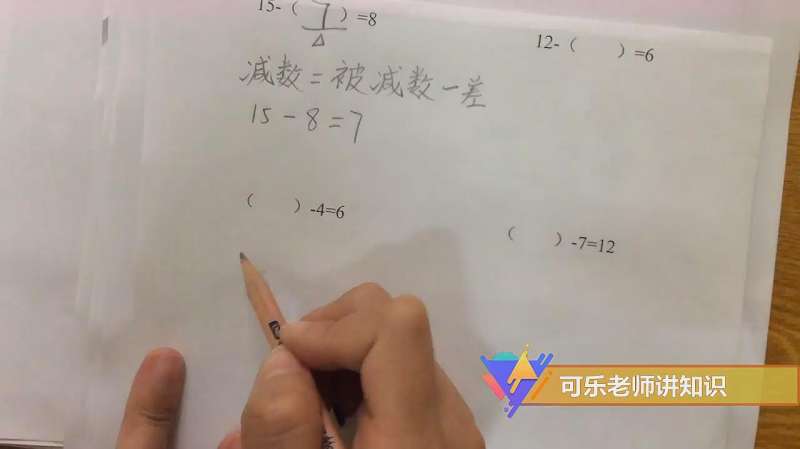 15-（ 7 ）=8
12-（ ）=6
减数=被减数-差
15-8=7
（ ）-4=6
（ ）-7=12
可乐老师讲知识